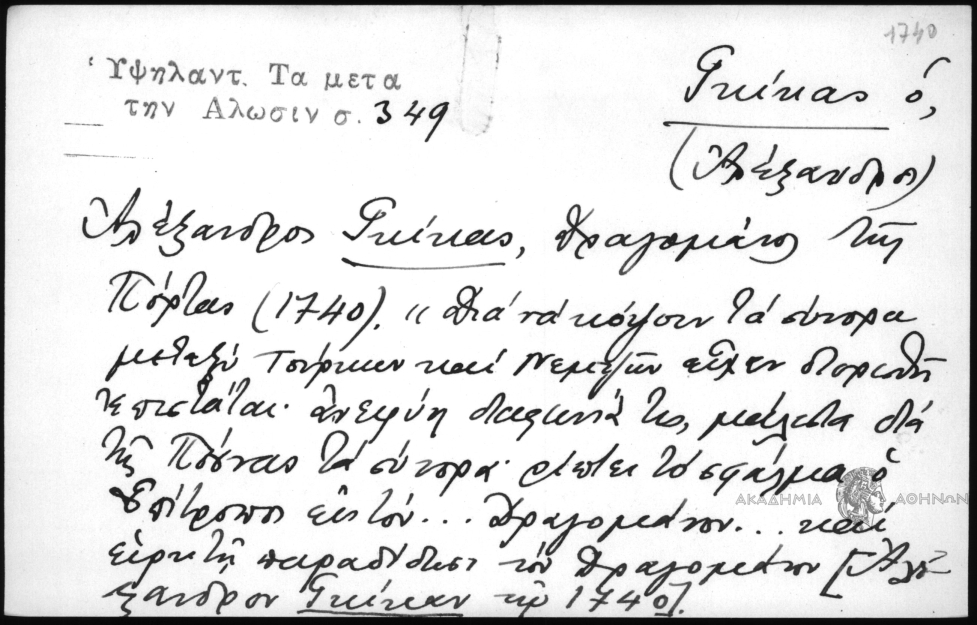 1740
Ὑψηλαντ. Τα μετα
την Αλωσιν σ. 349
Γκίκας ὁ,
(Ἀλέξανδρος)
Ἀλέξανδρος Γκίκας, Δραγομάνος τῆς
Πόρτας (1740). « Διά νά κόψουν τά σύνορα
μεταξύ Τούρκων καί Νεμτζῶν εἶχον διορισθῆ
ἐπιστάται· ἀνεφύη διαφωνία τις, μάλιστα διά
τῆς Πούνας τά σύνορα· ρίπτει τό σφάλμα ὁ
Ἐπίτροπος εἰς τόν... Δραγομάνον... καί
εἰρκτῇ παραδίδωσι τόν Δραγομάνον [Ἀλέ-
ξανδρον Γκίκαν τῷ 1740].
ΑΚΑΔΗΜΙΑ ΑΘΗΝΩΝ